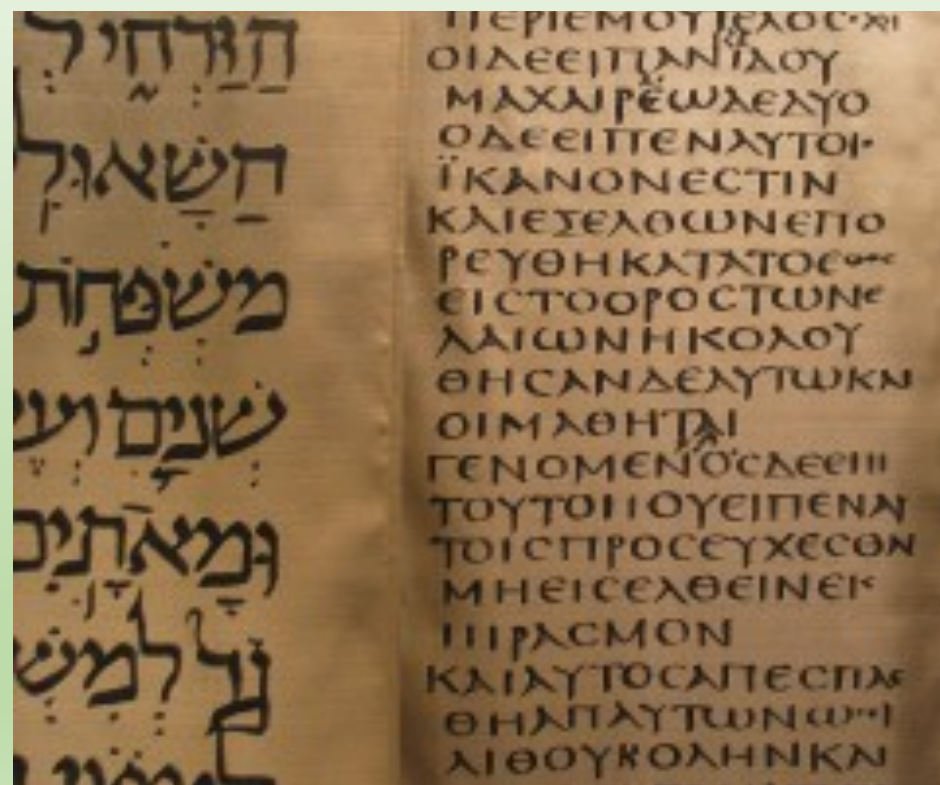 הַזַּרְחִי
הַשָּׁאוּלִ
מִשְׁפְּחֹת
שְׁנַיִם
וּמָאתַיִם
גָד לְמִשְׁ
ΠΕΡΙΕΜΟΥΤΕΛΟC·ΧΙ
ΟΙΔΕΕΙΠΑΝΙΔΟΥ
ΜΑΧΑΙΡΕΩΔΕΔΥΟ
ΟΔΕΕΙΠΕΝΑΥΤΟΙ·
ΪΚΑΝΟΝΕCΤΙΝ
ΚΑΙΕΞΕΛΘΩΝΕΠΟ
ΡΕΥΘΗΚΑΤΑΤΟΕΘΟC
ΕΙCΤΟΟΡΟCΤΩΝΕ
ΛΑΙΩΝΗΚΟΛΟΥ
ΘΗCΑΝΔΕΑΥΤΩΚΑΙ
ΟΙΜΑΘΗΤΑΙ
ΓΕΝΟΜΕΝΟCΔΕΕΠΙ
ΤΟΥΤΟΠΟΥΕΙΠΕΝΑΥ
ΤΟΙCΠΡΟCΕΥΧΕCΘΑΙ
ΜΗΕΙCΕΛΘΕΙΝΕΙC
ΠΙΡΑCΜΟΝ
ΚΑΙΑΥΤΟCΑΠΕCΠΑC
ΘΗΑΠΑΥΤΩΝΩCΙ
ΛΙΘΟΥΒΟΛΗΝΚΑΙ